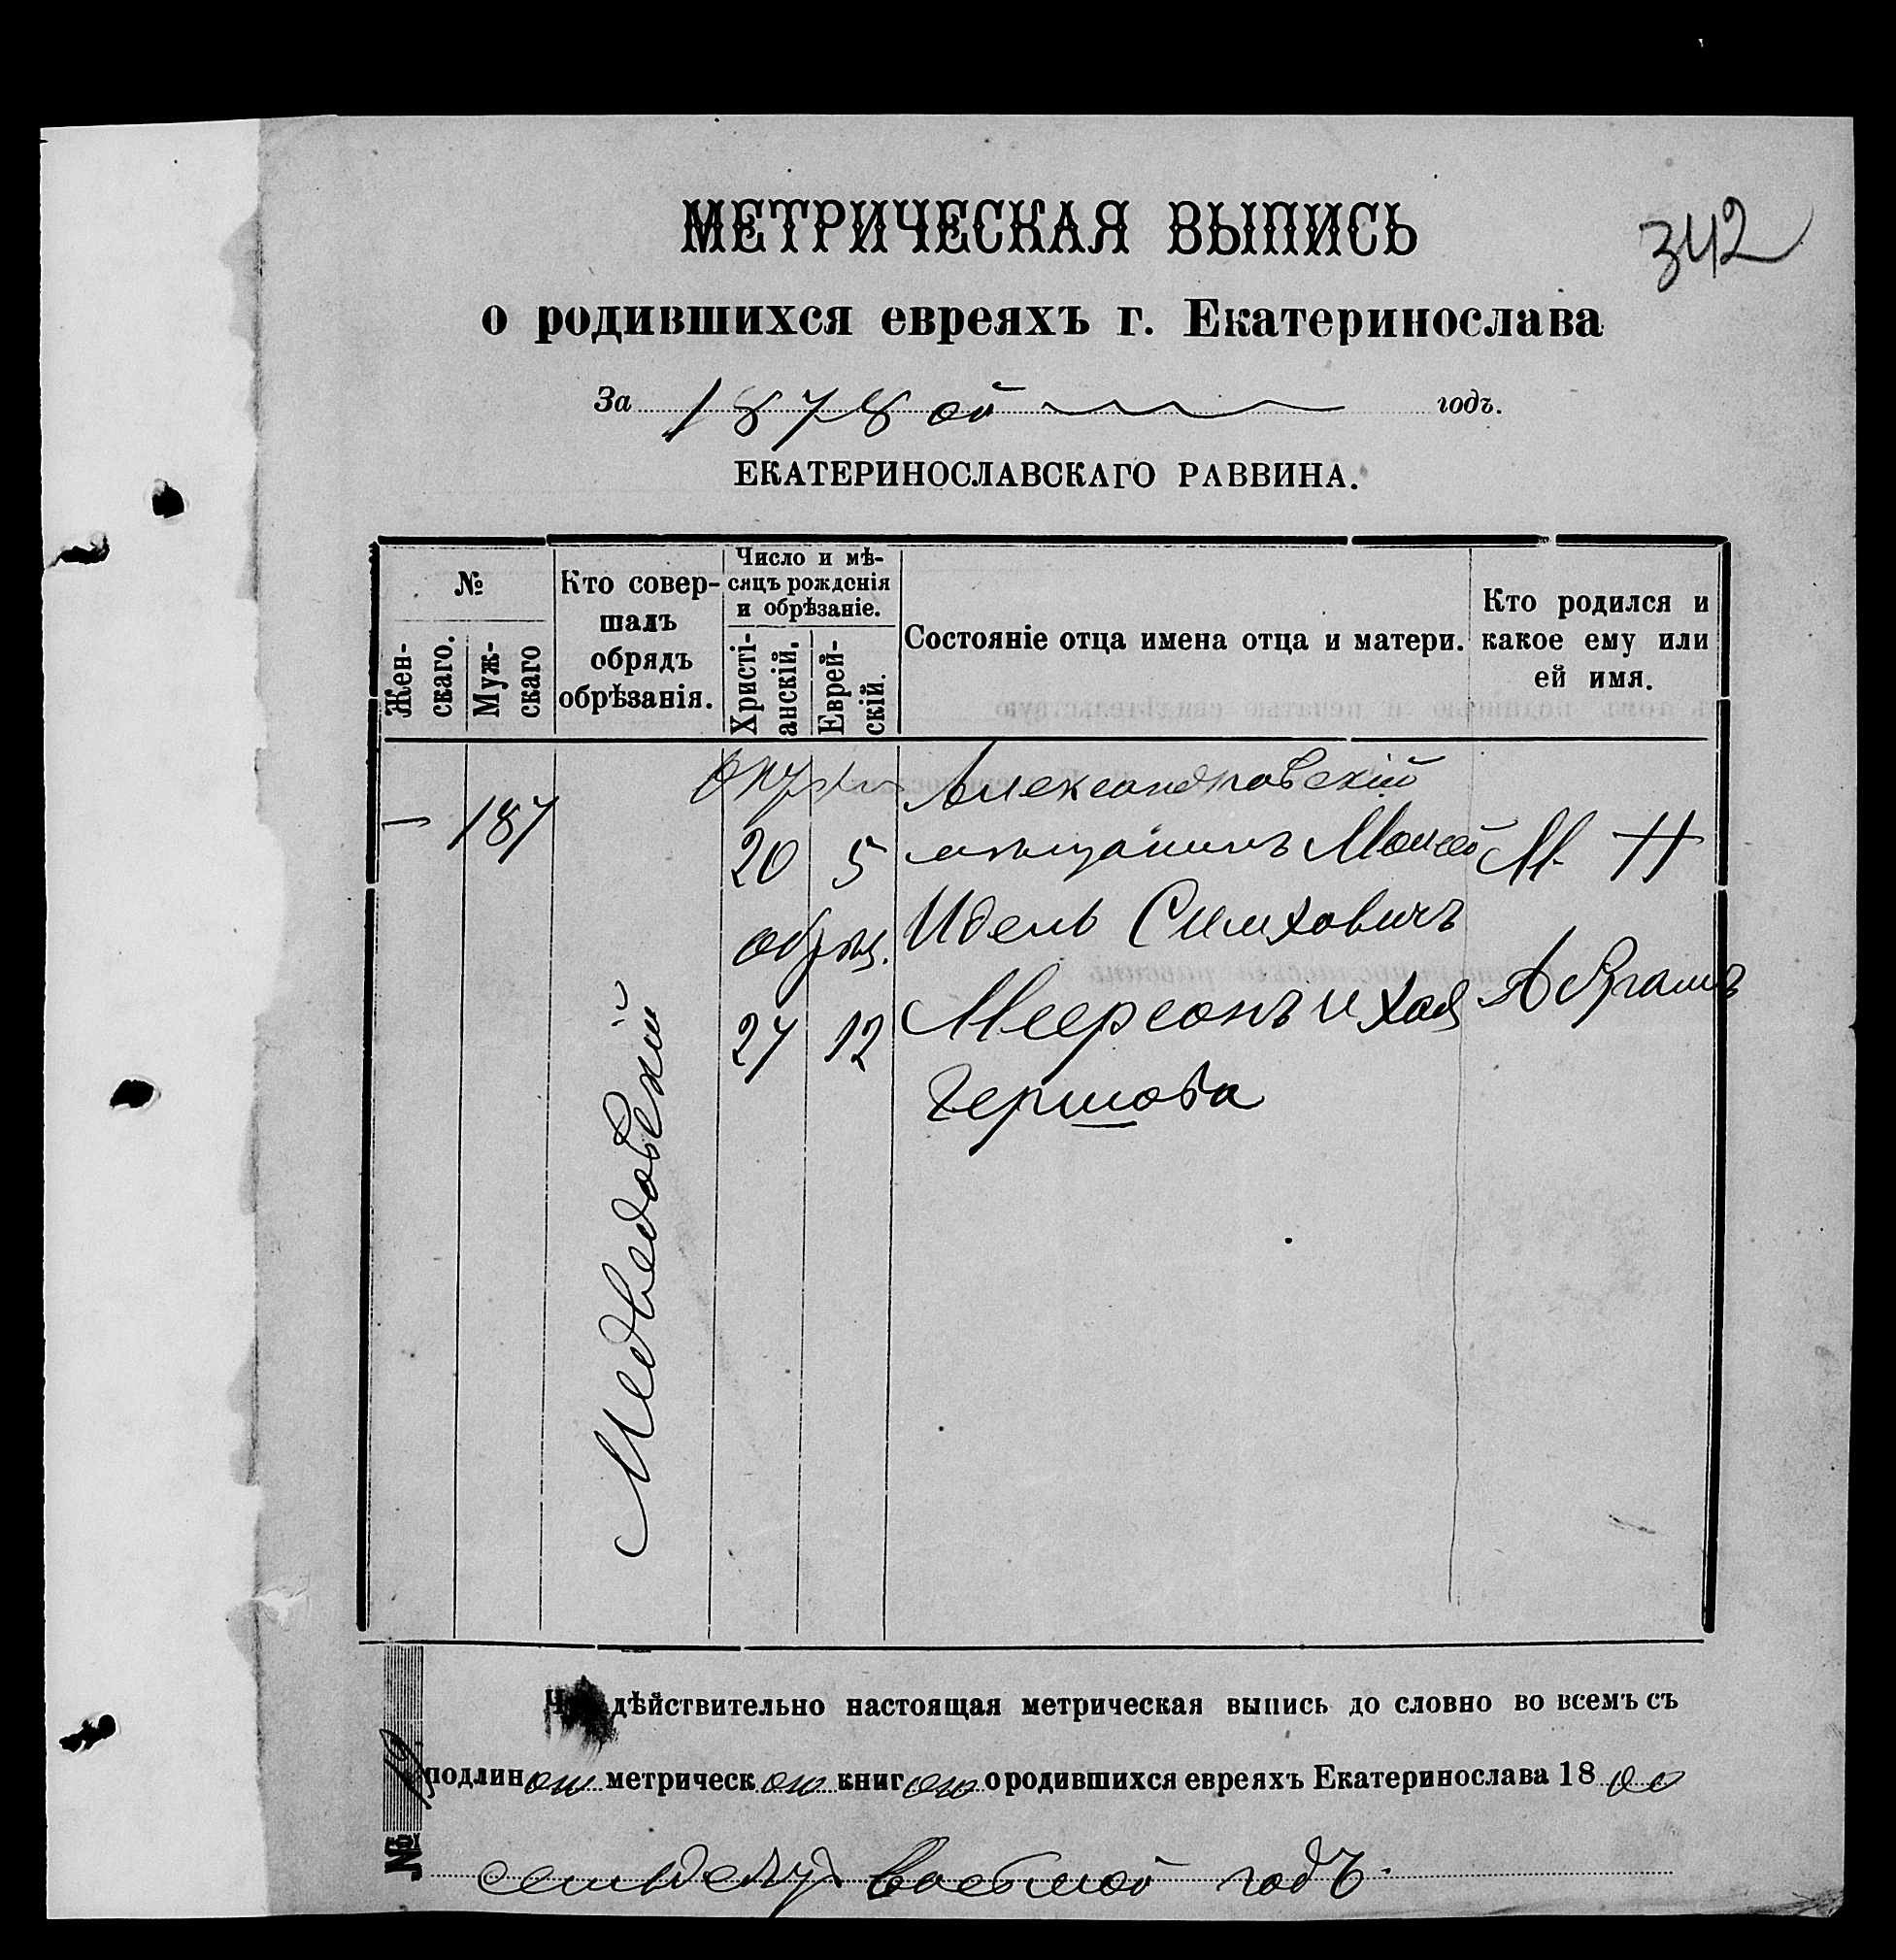 342
МЕТРИЧЕСКАЯ ВЫПИСЬ
о родившихся евреяхъ г. Екатеринослава
За 1878 ой годъ.
ЕКАТЕРИНОСЛАВСКАГО РАВВИНА.
№
Жен-
скаго.
Муж-
скаго
Кто совер-
шалъ
обрядъ
обрѣзанія.
Число и мѣ-
сяцъ рожденія
и обрѣзаніе.
Христі-
анскій.
Еврей-
скій.
Состояніе отца имена отца и матери.
Кто родился и
какое ему или
ей имя.
—
187
Медведовский
20 5
обрѣз.
27 12
Александровскій
мѣщанинъ Моисей
Идель Симховичъ
Меерсонъ и Хая
Гершова
М.
Абрамъ
дѣйствительно настоящая метрическая выпись до словно во всемъ съ
подлиною метрическою книгою о родившихся евреяхъ Екатеринослава 18
семьдесят восьмой годъ.
№ 19